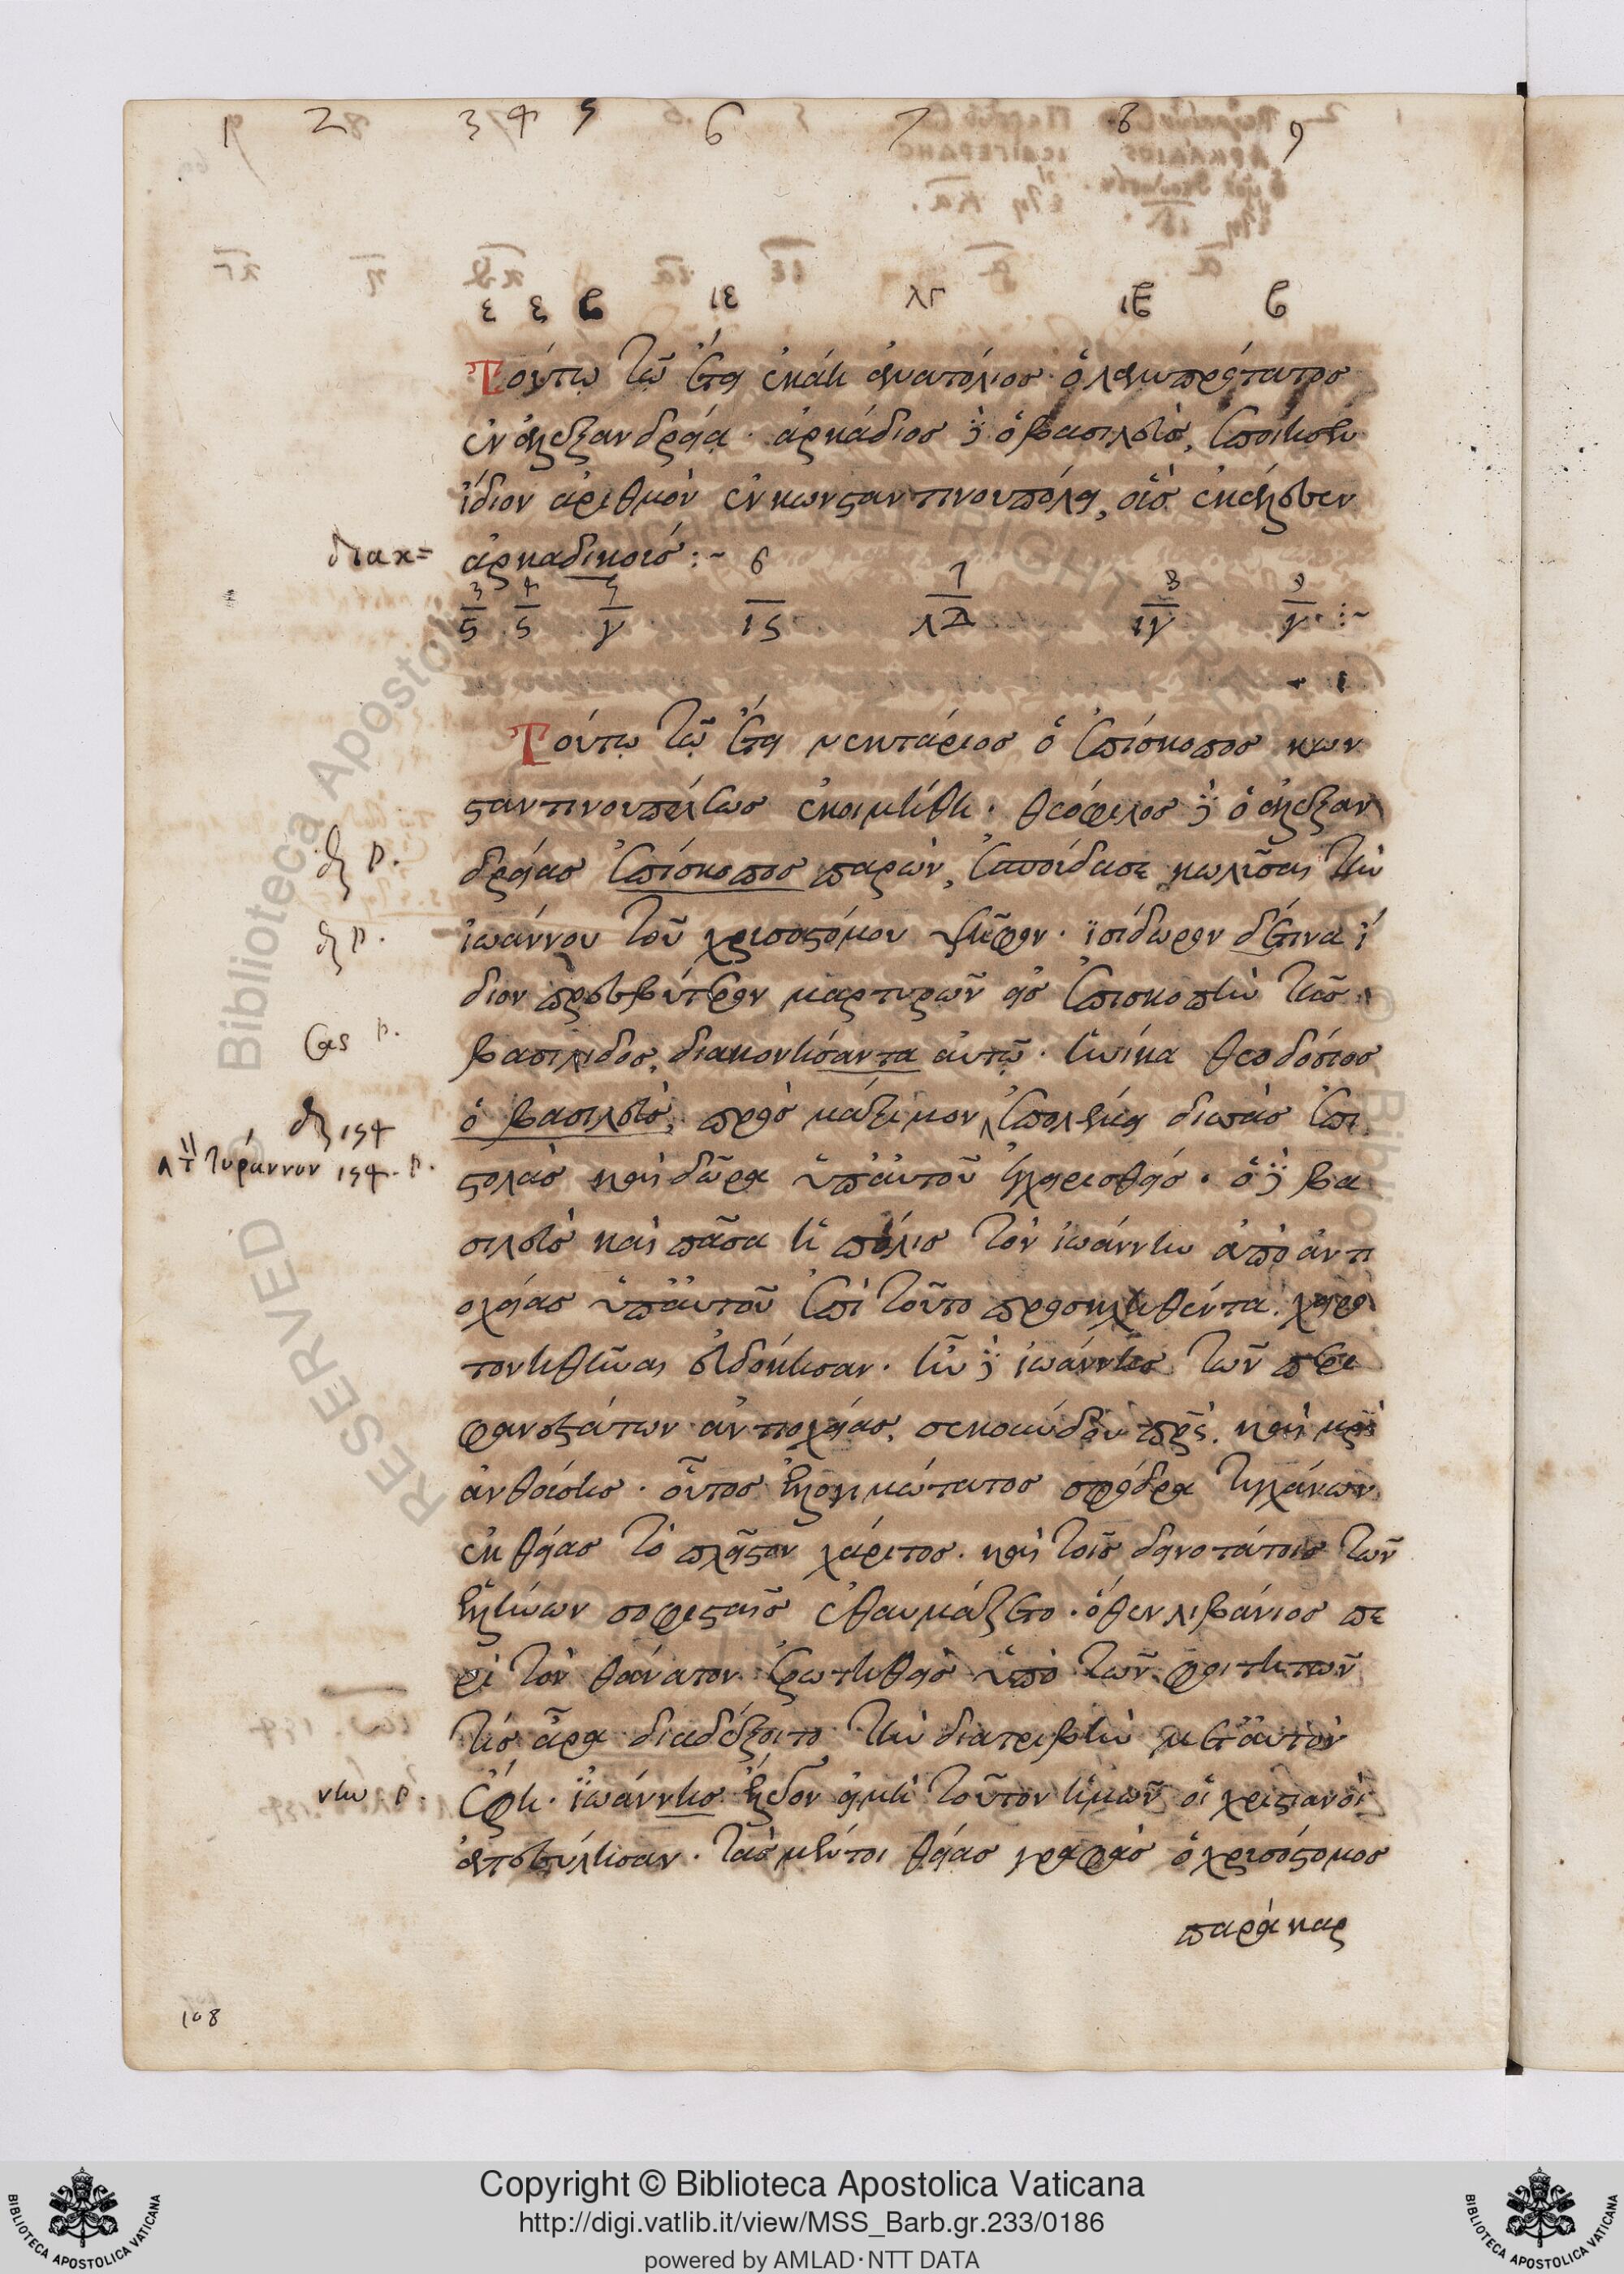 1 2 3 4 5 6 7 8 9
Τούτῳ τῷ ἔτει ἐκάη ἀνατόλιος ὁ λαμπρότατος
ἐν ἀλεξανδρείᾳ · ἀρκάδιος δὲ ὁ βασιλεὺς, ἐποίησεν
ἴδιον ἀριθμὸν ἐν κωνσταντινουπόλει, οὓς ἐκάλεσεν
διακ=
ἀρκαδικούς :~ 6
3 4 5 7 8 9
ς ς γ ις λα ιγ γ :~
Τούτῳ τῷ ἔτει νεκτάριος ὁ ἐπίσκοπος κων
σταντινουπόλεως ἐκοιμήθη · θεόφιλος δὲ ὁ ἀλεξαν
δρείας ἐπίσκοπος παρὼν, ἐσπούδασε κωλῦσαι τὴν
ἰωάννου τοῦ χρυσοστόμου ψῆφον · ἰσίδωρον δέ τινα ἴ
διον πρεσβύτερον μαρτυρῶν εἰς ἐπισκοπὴν τῆς
βασιλίδος, διακονήσαντα αὐτῷ · ἡνίκα θεοδόσιος
ὁ βασιλεὺς, πρὸς μάξιμον ἐπολέμει διττὰς ἐπι
Τύραννον 194. p.
στολὰς καὶ δῶρα ὑπ' αὐτοῦ ἐγχειρισθείς · ὁ δὲ βα
σιλεὺς καὶ πᾶσα ἡ πόλις τὸν ἰωάννην ἀπὸ ἀντι
οχείας ὑπ' αὐτοῦ ἐπὶ τοῦτο προσκληθέντα, χειρο
τονηθῆναι εὐδόκησαν · ἦν δὲ ἰωάννης τῶν περι
φανεστάτων ἀντιοχείας, σεκούνδου πρς, καὶ μρς
ἀνθούσης · οὗτος ἐλλογιμώτατος σφόδρα τυγχάνων
ἐκ θείας τὸ πλεῖστον χάριτος · καὶ τοῖς δεινοτάτοις τῶν
ἑλλήνων σοφισταῖς ἐθαυμάζετο · ὅθεν λιβάνιος πε
ρὶ τὸν θάνατον ἐρωτηθεὶς ὑπὸ τῶν φοιτητῶν
τίς ἄρα διαδέξοιτο τὴν διατριβὴν μετ' αὐτὸν
ἔφη · ἰωάννης ἔδον εἰ μὴ τοῦτον ἡμῶν οἱ χριστιανοὶ
ἀπεσύλησαν · τὰς μέντοι θείας γραφὰς ὁ χρυσόστομος
παρὰ καρ
108
Copyright © Biblioteca Apostolica Vaticana
http://digi.vatlib.it/view/MSS_Barb.gr.233/0186
powered by AMLAD · NTT DATA
BIBLIOTECA APOSTOLICA VATICANA
BIBLIOTECA APOSTOLICA VATICANA